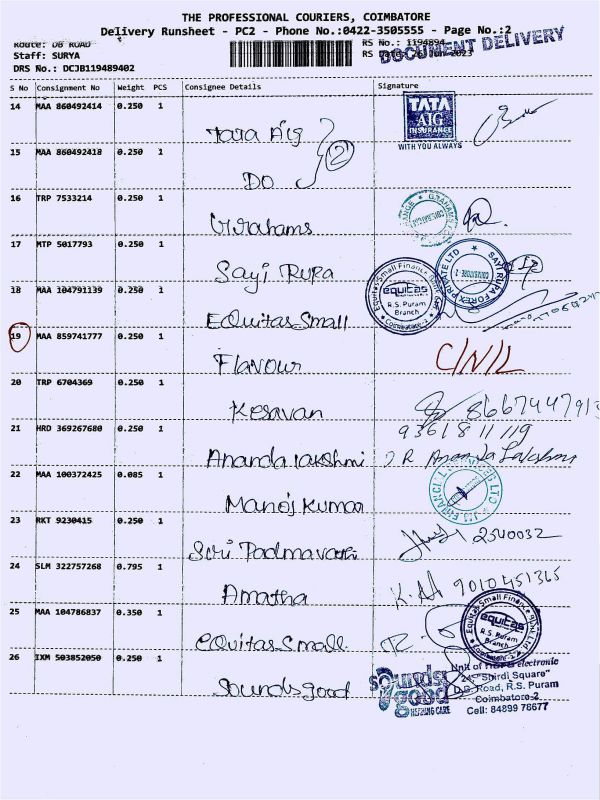 THE PROFESSIONAL COURIERS, COIMBATORE
Delivery Runsheet - PC2 - Phone No.:0422-3505555 - Page No.:2
Route: DB ROAD RS No.: 1194894
DOCUMENT DELIVERY
Staff: SURYA RS Date: 26 Jun 2023
DRS No.: DCJB119489402
S No Consignment No Weight PCS Consignee Details Signature
14 MAA 860492414 0.250 1
TATA AIG INSURANCE
Tata Aig 2
WITH YOU ALWAYS
15 MAA 860492418 0.250 1
DO
16 TRP 7533214 0.250 1
Grahams
17 MTP 5017793 0.250 1
SAYI RUPA FOREX PRIVATE LTD
Sayi Rupa
18 MAA 104791139 0.250 1
equitas
R.S. Puram
Branch
Coimbatore-2
Equitas Small
19 MAA 859741777 0.250 1
Flavour C/N/L
20 TRP 6704369 0.250 1
Kesavan 8667447913
21 HRD 369267680 0.250 1
9361811119
Ananda Lakshmi
22 MAA 100372425 0.085 1
Manoj Kumar
23 RKT 9230415 0.250 1
Sri Padmavathi 2540032
24 SLM 322757268 0.795 1
Amatha 9010451365
25 MAA 104786837 0.350 1
Equitas Small Finance
equitas
R.S. Puram
Branch
Equitas Small
26 IXM 503852050 0.250 1
Soundsgood
sounds good
HEARING CARE
electronic
24 "Shirdi Square"
D.B. Road, R.S. Puram
Coimbatore-2
Cell: 84899 78677